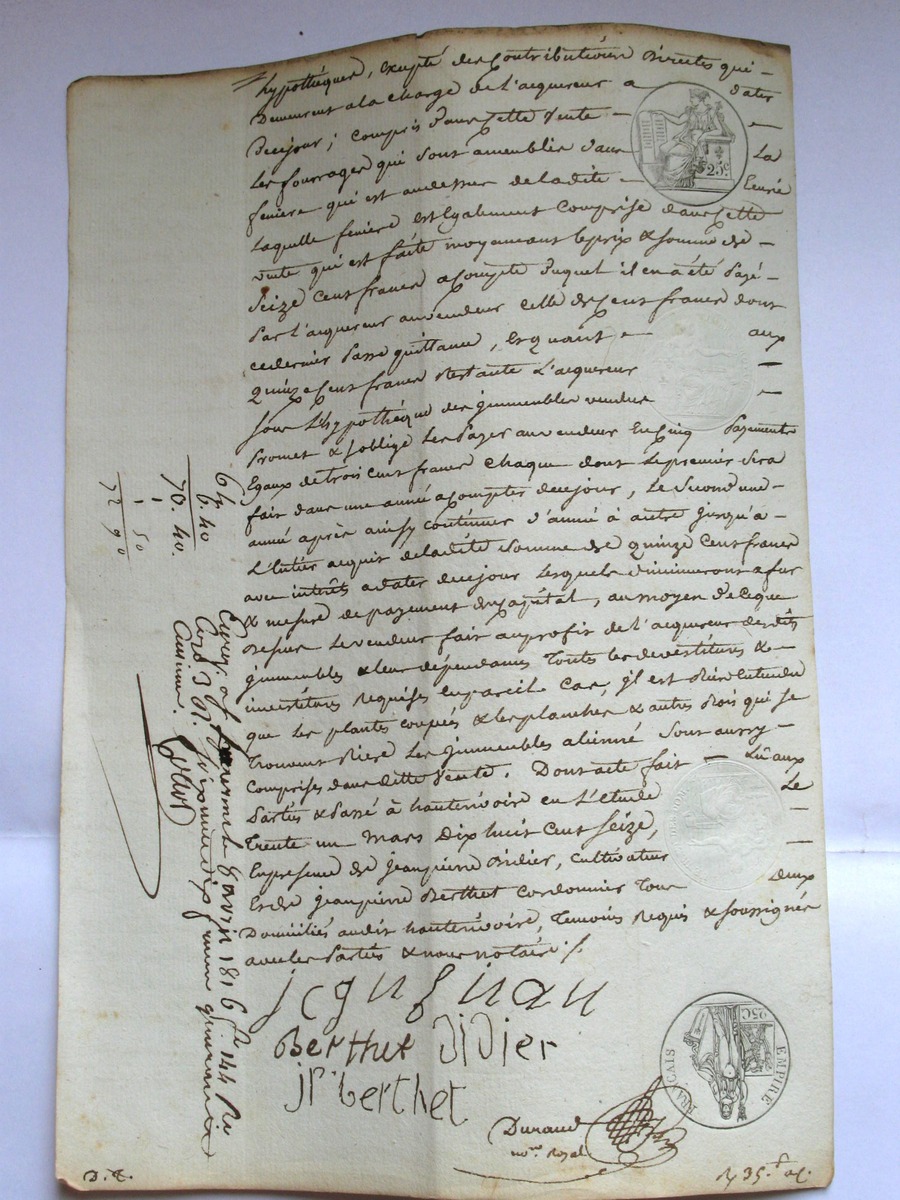 hypothéques, exepté des Contributions Directes qui -
Demeurent a la charge de l'acquereur a dater
Decejour; compris dans Cette Vente - —
Les fourrages qui sont ameublés dans La
feniere qui est audessus deladite - Ecurie
Laquelle feniere est Egalement Comprise dans Cette
vente qui est faite moyennant le prix & somme de -
Seize Cent francs acompte duquel il en a été Payé -
Par l'acquereur au vendeur Celle de Cent francs dont
cedernier Passe quittance, Et quant - aux
quinze Cent francs Restants L'acquereur —
sous L'hypothéque des jmmeubles vendus —
Promet & s'oblige Les Payer au vendeur En Cinq Payements
Egaux de trois Cent francs Chaque dont Le premier sera
fait dans une année acompter decejour, Le Second une -
année après ainsy Continuer d'année à autre jusqu'a -
L'Entier acquit deladite Somme de quinze Cent francs
avec intérêts adater decejour Lesquels diminueront a fur
& mesure de payement du Capital, au moyen de Ceque
Dessus Levendeur fait au profit de l'acquereur desdits
jmmeubles & leur dépendances Toutes les devestitures & -
investitures Requises En pareil Cas, jl est Bien Entendu
que Les plantes coupées & les planches & autres Bois qui se
Trouvent Riere Les jmmeubles aliené Sont aussy -
Comprises dans Cette Vente. Dont acte fait - Lû aux
Parties & Passé à hauterivoire en L'Etude Le
Trente un Mars Dix huit Cent Seize, —
En presence de jeanpierre Didier, Cultivateur
Et de jeanpierre Berthet Cordonnier Tous deux
Domiciliés audit hauterivoire, Temoins Requis & soussignés
avec les Parties & nous notaire ./.
Berthet Didier
jp berthet
Durand
no.re Royal
D.R.
35
64
6. 40
70. 40
1 50
1
72 90
avril 1816 f.o 144 Ro
25c
EMPIRE FRANÇAIS
25C